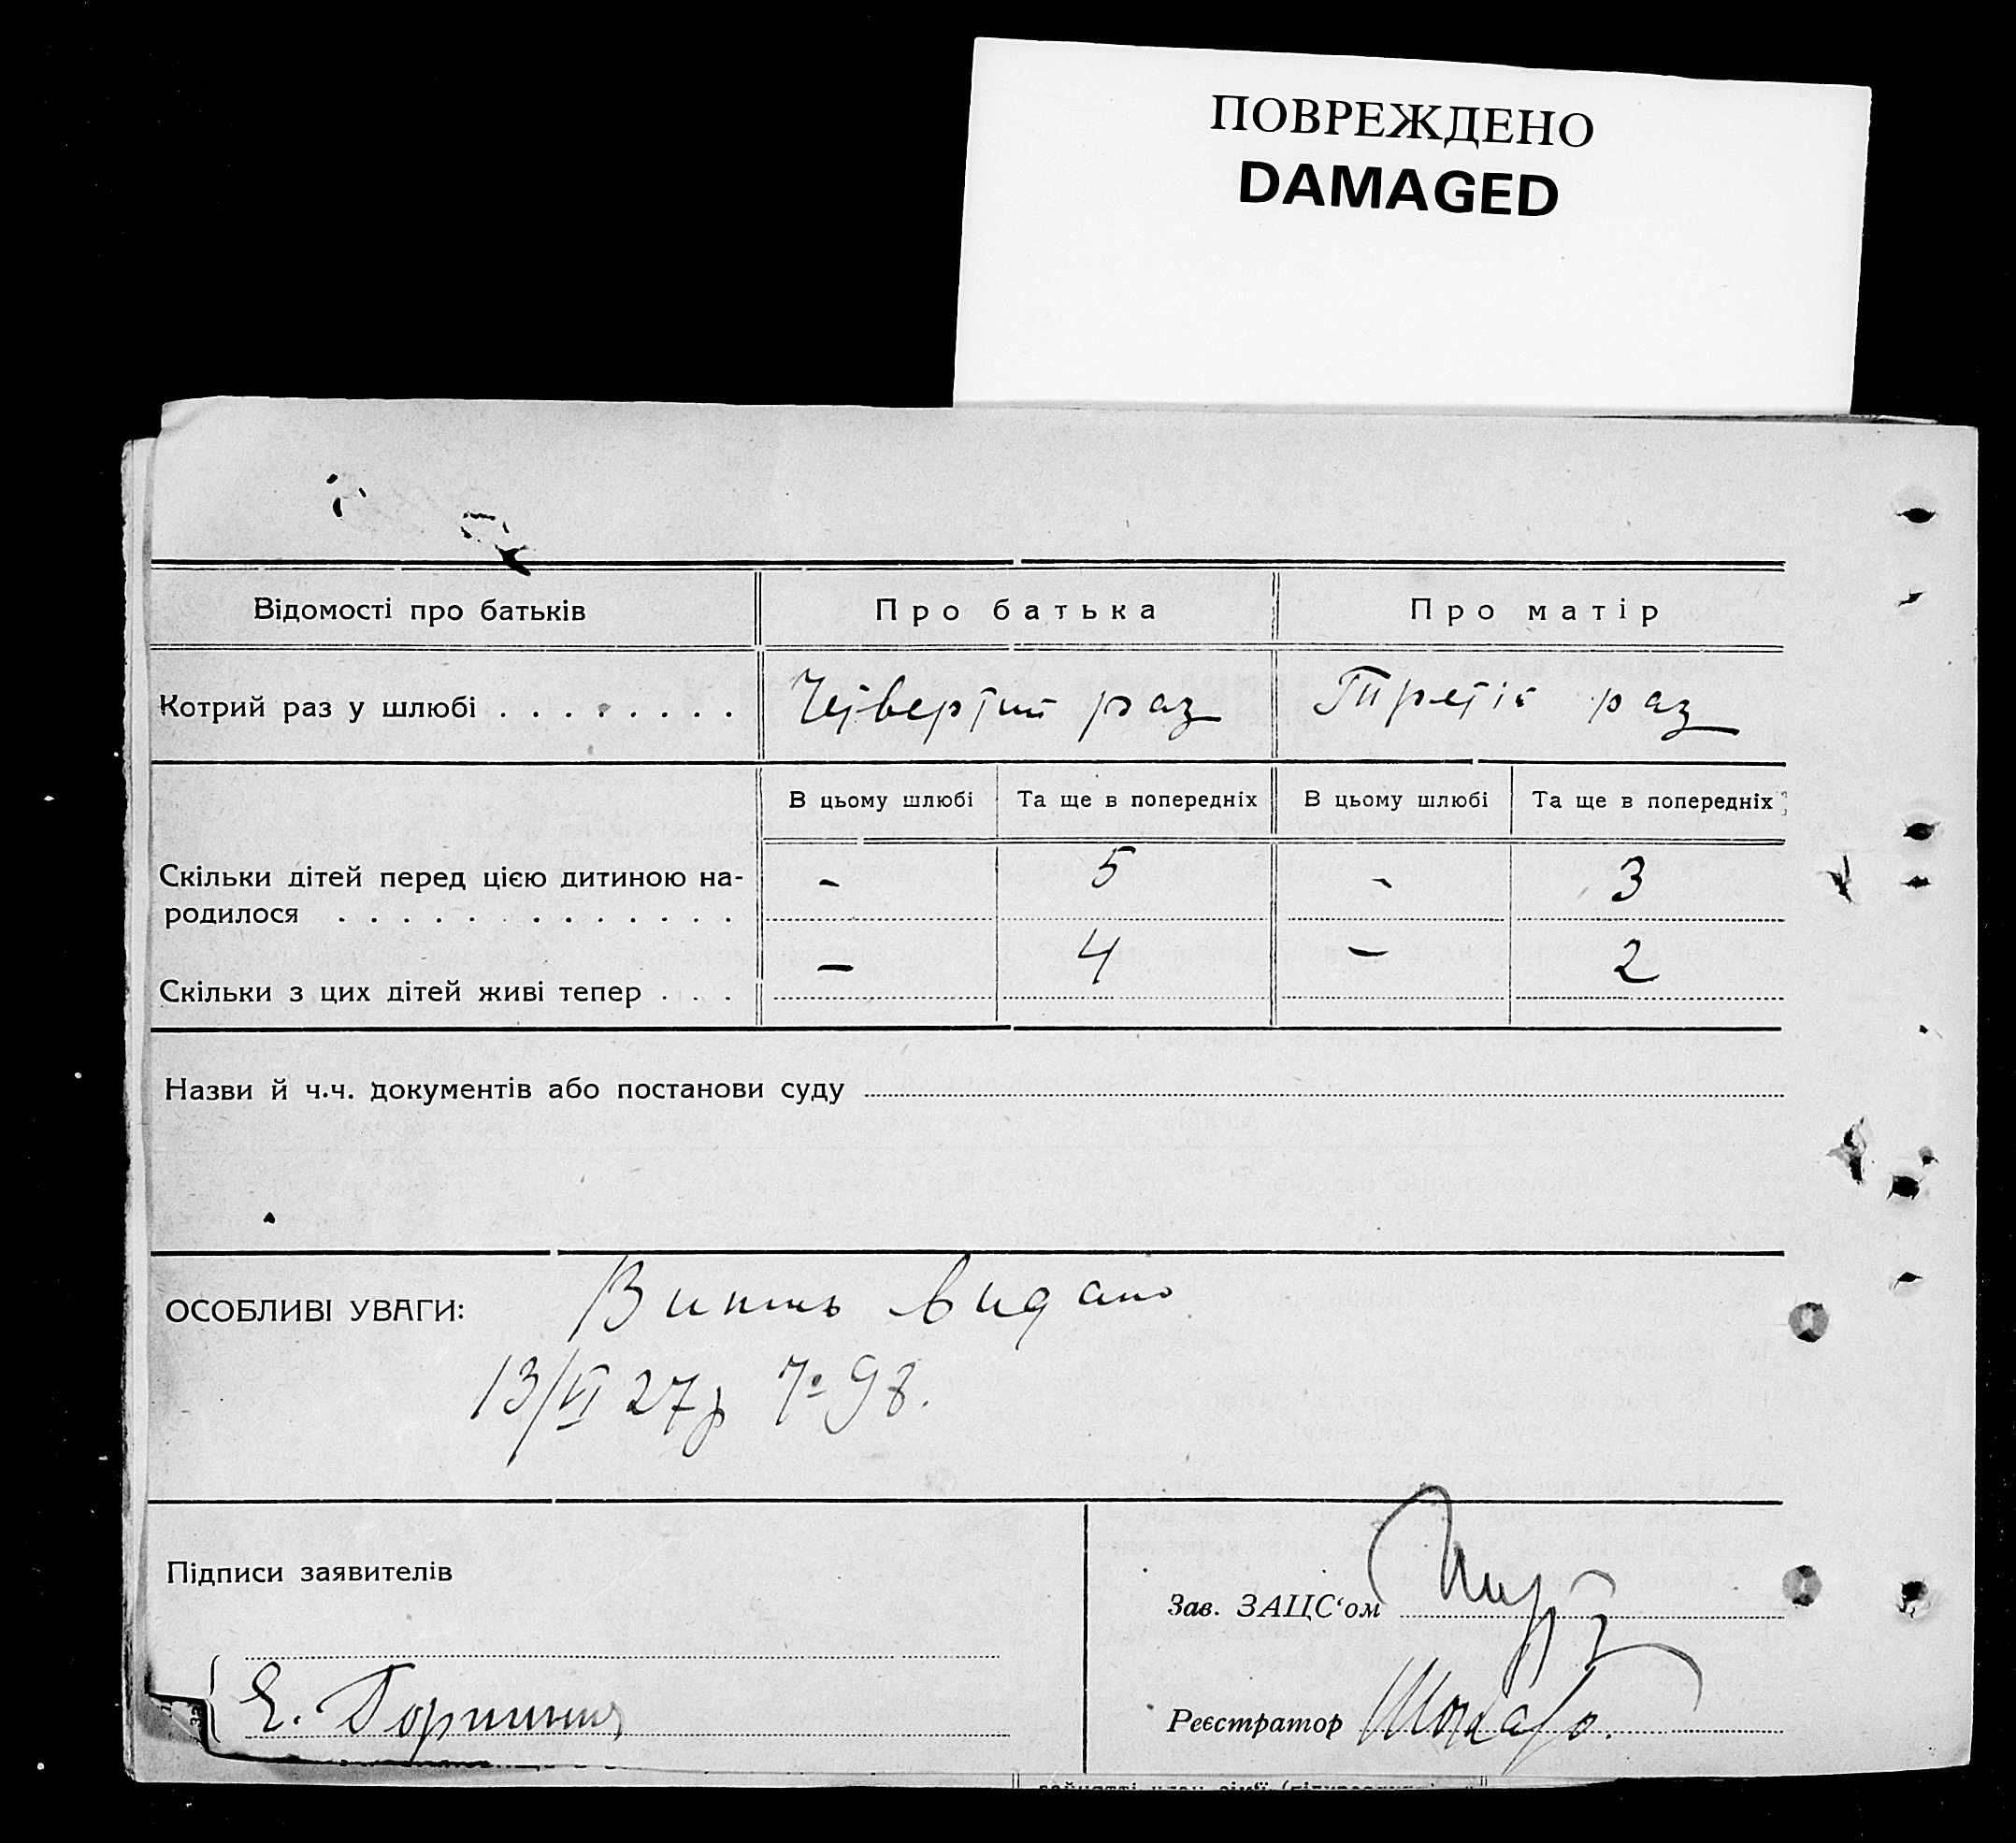 ПОВРЕЖДЕНО
DAMAGED
Відомості про батьків
Про батька
Про матір
Котрий раз у шлюбі . . . . . . . .
Четвертий раз
Третій раз
В цьому шлюбі
Та ще в попередніх
В цьому шлюбі
Та ще в попередніх
Скільки дітей перед цією дитиною на-
родилося . . . . . . . . . . . . .
-
5
-
3
Скільки з цих дітей живі тепер . . .
-
4
-
2
Назви й ч.ч. документів або постанови суду
ОСОБЛИВІ УВАГИ:
Випись видано
13/VI 27р 98.
Підписи заявителів
Зав. ЗАЦС‘ом
Е.
Реєстратор